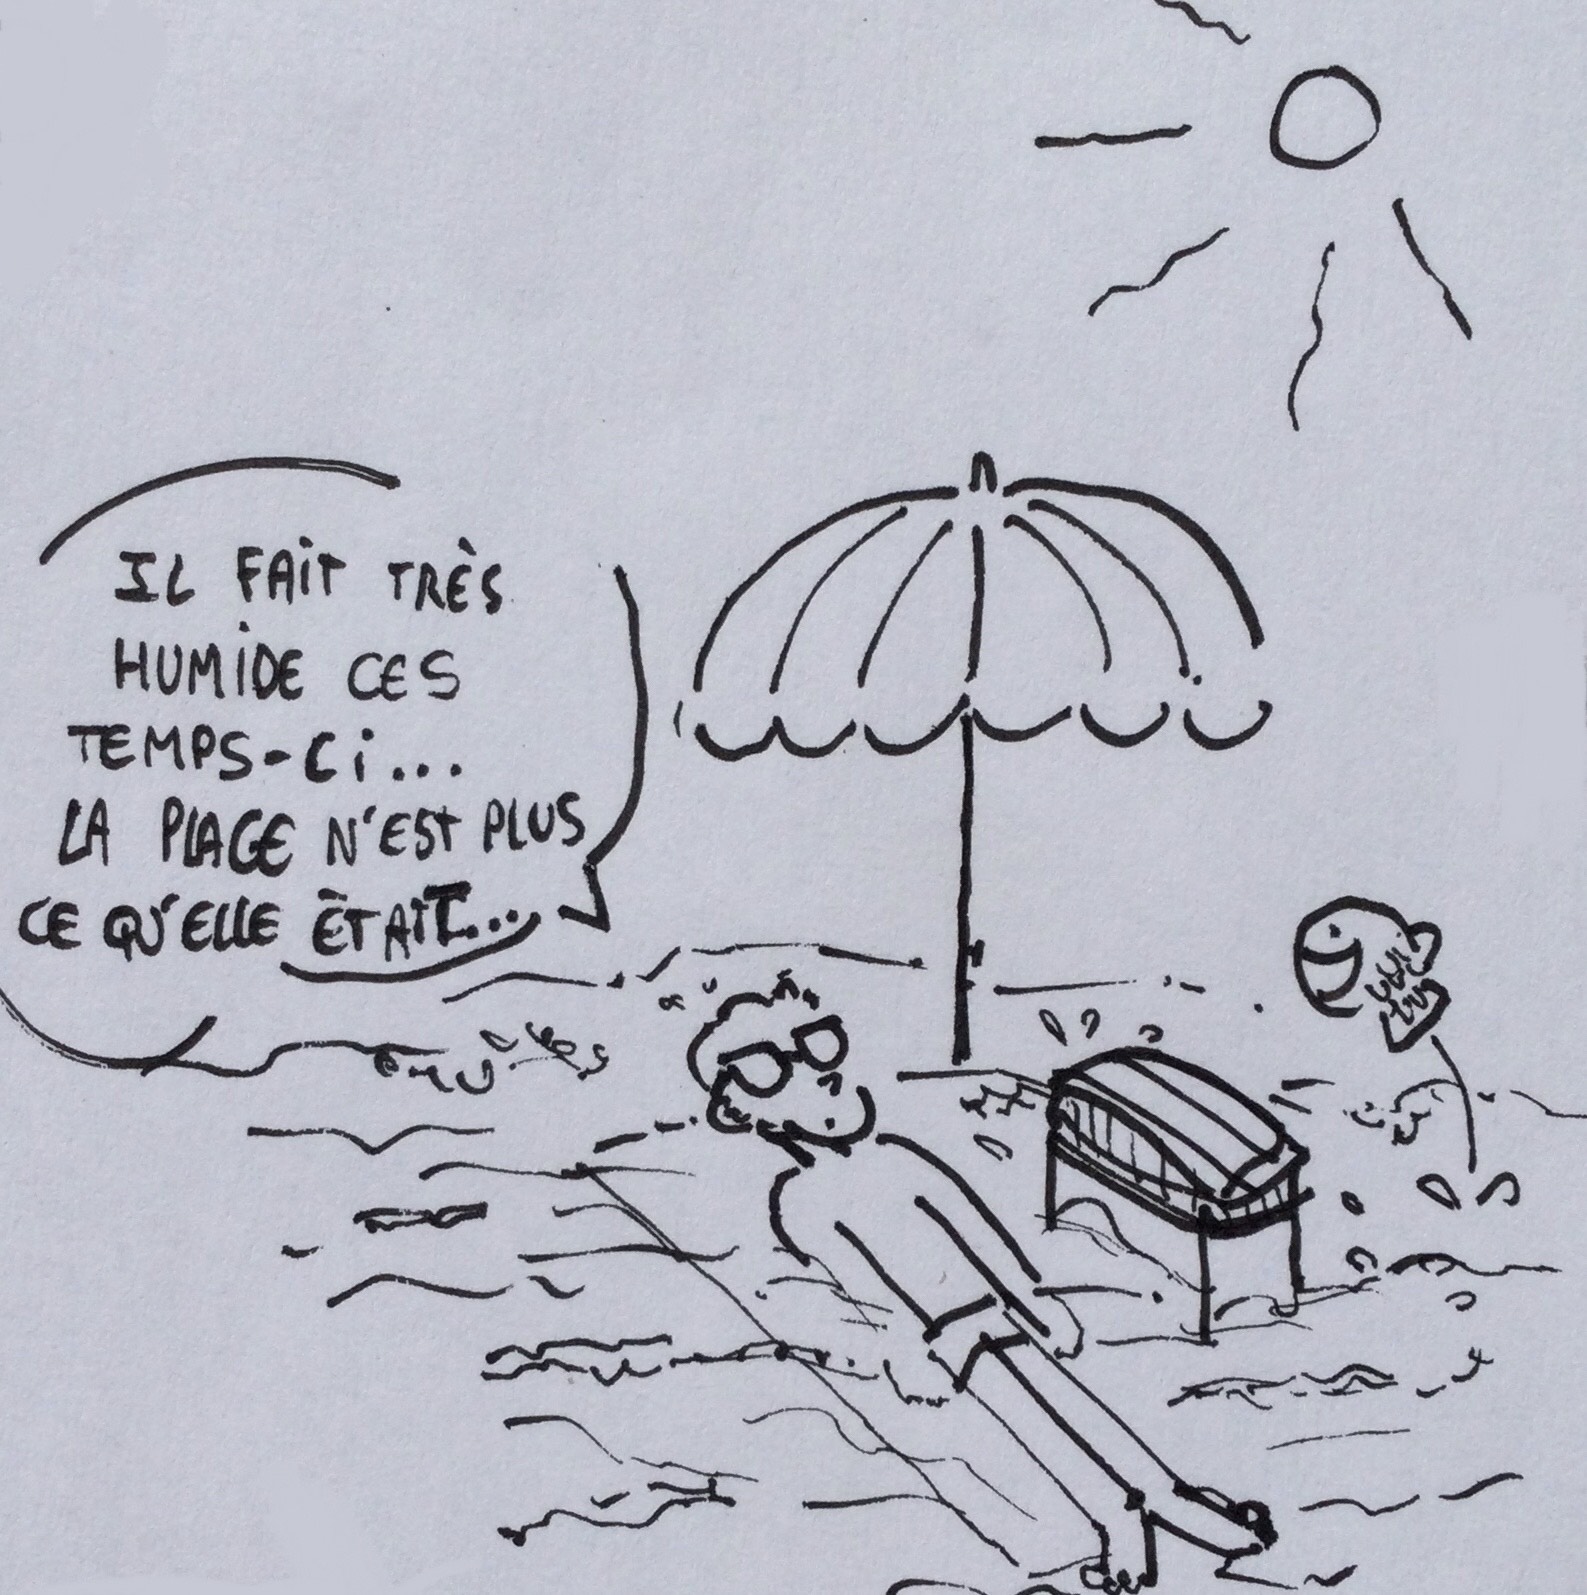 IL FAIT TRÈS
HUMIDE CES
TEMPS-CI...
LA PLAGE N'EST PLUS
CE QU'ELLE ÉTAIT...